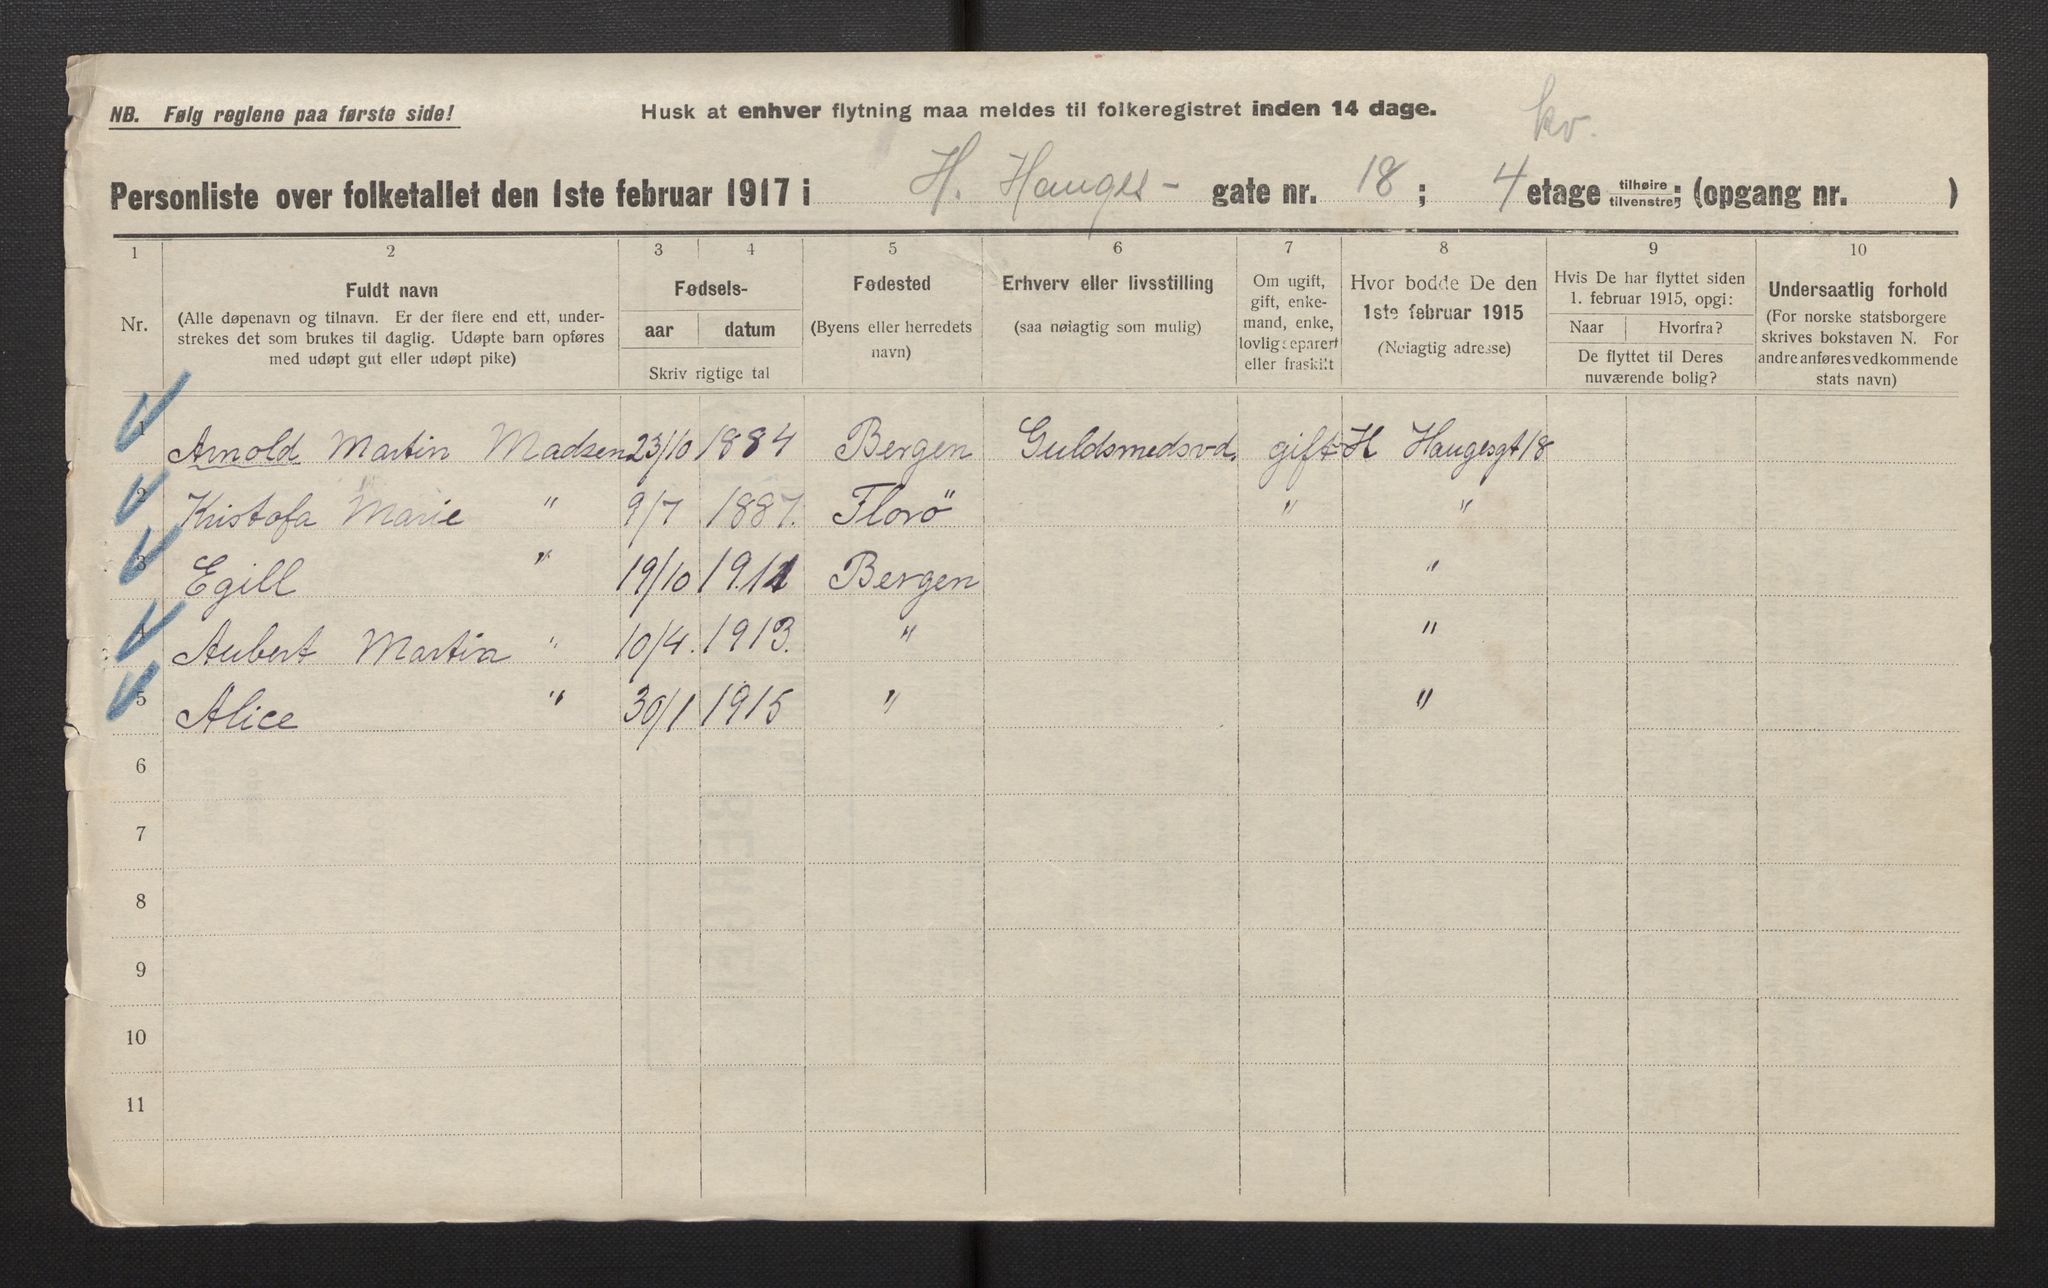 NB. Følg reglene paa første side!
Husk at enhver flytning maa meldes til folkeregistret inden 14 dage.
kv.
Personliste over folketallet den 1ste februar 1917 i H. Hauges - gate nr. 18 ; 4 etage tilhøire tilvenstre; (opgang nr. )
1 2 3 4 5 6 7 8 9 10
Nr.
Fuldt navn
(Alle døpenavn og tilnavn. Er der flere end ett, under-
strekes det som brukes til daglig. Udøpte barn opføres
med udøpt gut eller udøpt pike)
Fødsels-
aar datum
Skriv rigtige tal
Fødested
(Byens eller herredets
navn)
Erhverv eller livsstilling
(saa nøiagtig som mulig)
Om ugift,
gift, enke-
mand, enke,
lovlig separert
eller fraskilt
Hvor bodde De den
1ste februar 1915
(Nøiagtig adresse)
Hvis De har flyttet siden
1. februar 1915, opgi:
Naar Hvorfra?
De flyttet til Deres
nuværende bolig?
Undersaatlig forhold
(For norske statsborgere
skrives bokstaven N. For
andre anføres vedkommende
stats navn)
1 Arnold Martin Madsen 23/10 1884 Bergen Guldsmedsvd. gift H Haugesgt 18
2 Kristofa Marie " 9/7 1887. Florö " "
3 Egill " 19/10 1911 Bergen "
4 Aubert Martin " 10/4. 1913. " "
5 Alice " 30/1 1915 " "
6
7
8
9
10
11